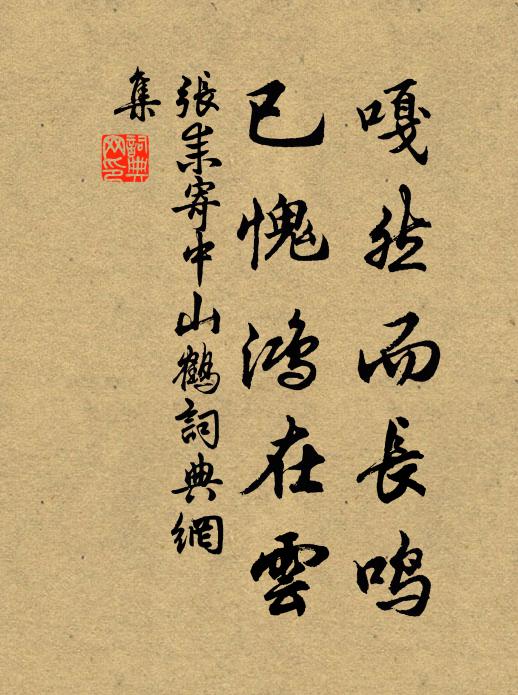 嘎然而長鳴
已愧鴻在雲
張耒寄中山鶴詞典網
集
詞典網印